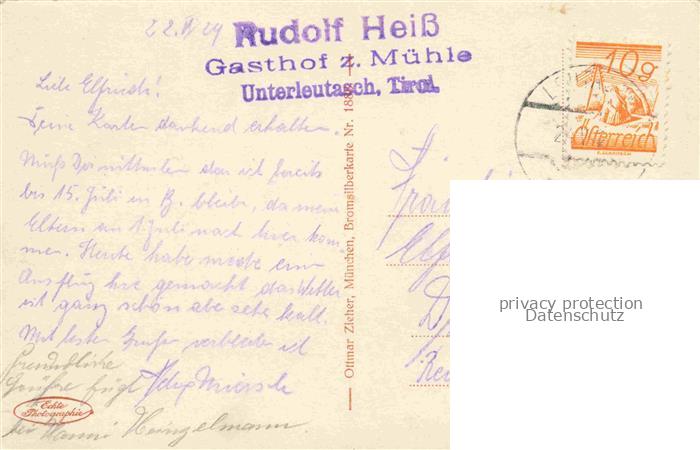 22.V.29
Rudolf Heiß
Gasthof z. Mühle
Unterleutasch, Tirol.
10g
Österreich
Liebe Elfriede!
Deine Karten dankend erhalten.
Muß Dir mitteilen das ich bereits
bis 15. Juli in B. bleibe, da meine
Eltern am 1. Juli nach hier kom
men. Heute habe einen
Ausflug hie gemacht das Wetter
ist ganz schön aber sehr kalt.
Mit besten Grüßen verbleibe ich
Freundliche
Grüsse fügt
bei Hanni Heinzelmann.
Echte
Photographie
Ottmar Zieher, München, Bromsilberkarte Nr. 188
privacy protection
Datenschutz